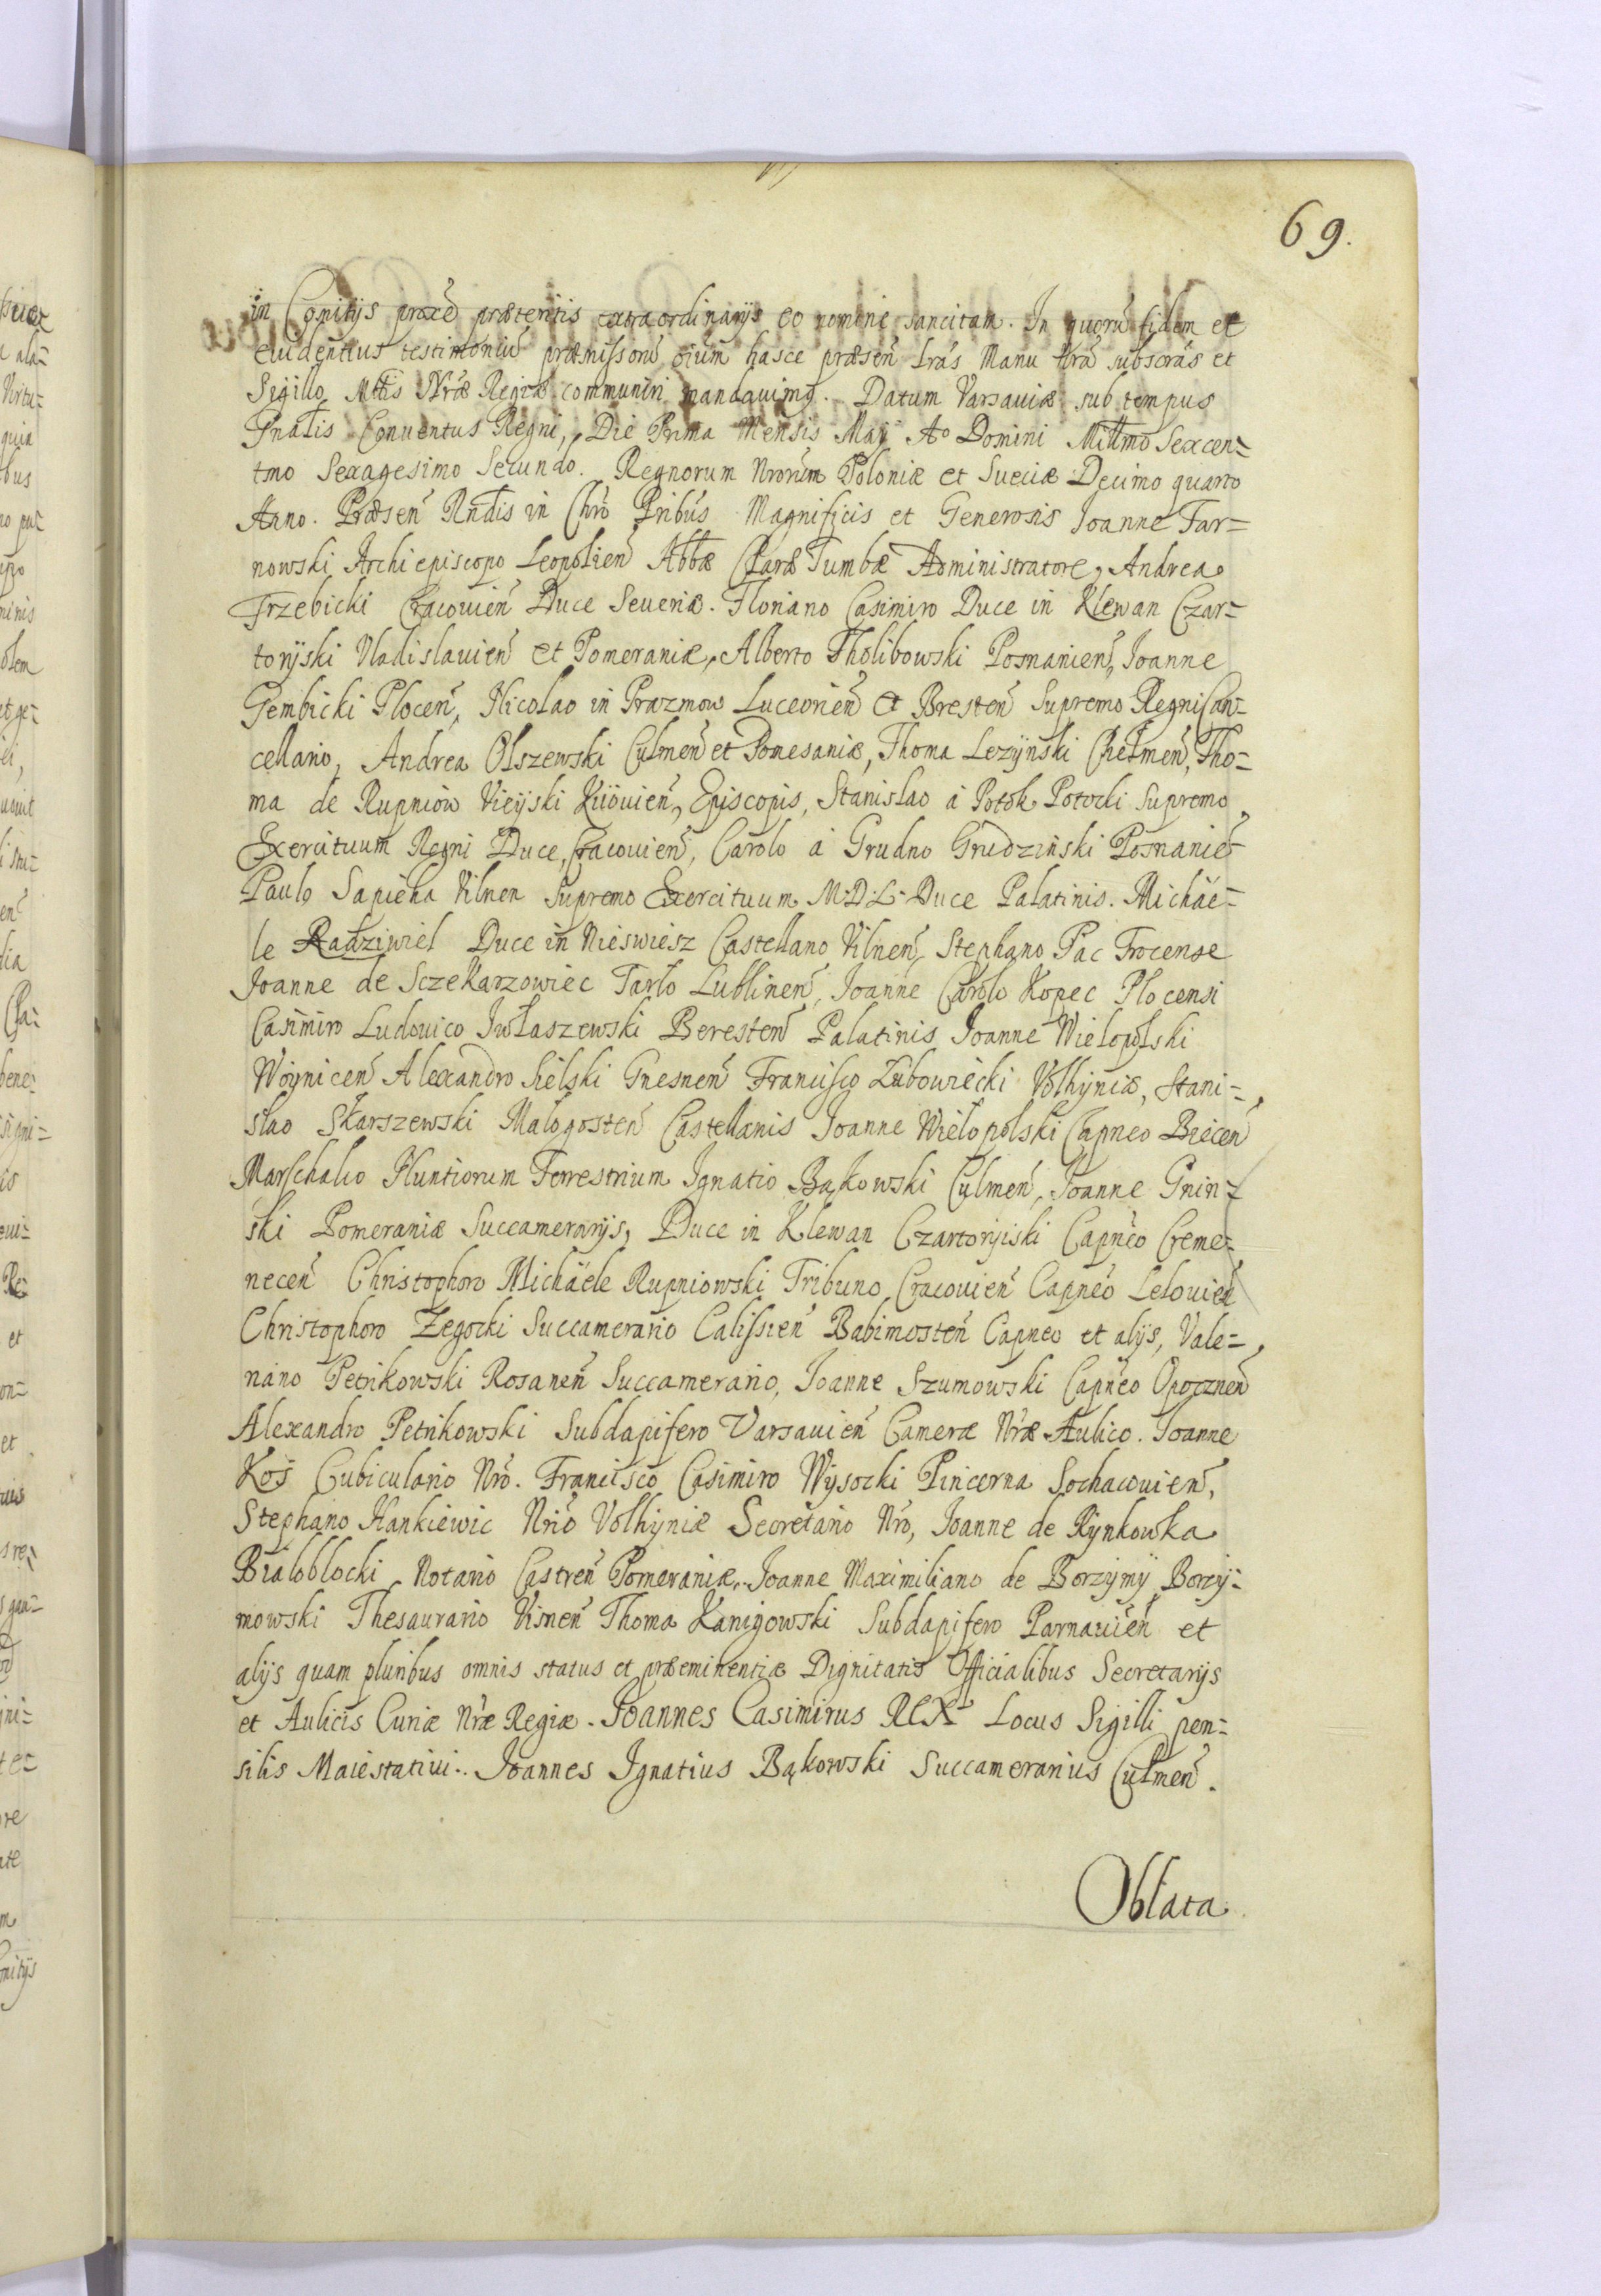 69.
in Comitijs proxe præteritis extraordinarijs eo nomine sancitam. In quorū fidem et
euidentius testimoniū præmissorū oiūm hasce præsen̄ Lrás Manu Nrā subscrás et
Sigillo Mttis Nræ Regiæ communiri mandauimq. Datum Varsauiæ sub tempus
Gnalis Conuentus Regni, Die Prima Mensis Maij Aº Domini Millmo Sexcen=
tmo Sexagesimo Secundo. Regnorum Nrorum Poloniæ et Sueciæ Decimo quarto
Anno. Præsen̄ Rndis in Chrō Pribús Magnificis et Generosis Joanne Tar=
nowski Archiepiscopo Leopolien̄ Abbæ Claræ Tumbæ Administratore, Andrea
Trzebicki Cracouien̄ Duce Seueriæ. Floriano Casimiro Duce in Klewan Czar=
toryiski Vladislauien̄ et Pomeraniæ, Alberto Tholibowski Posnanien̄, Joanne
Gembicki Plocen̄, Nicolao in Prazmow Luceorien̄ et Bresten̄ Supremo Regni Can=
cellario, Andrea Olszewski Culmen̄ et Pomesaniæ, Thoma Lezyński Chełmen̄, Tho=
ma de Rupniow Vieyski Kiiouien̄, Episcopis, Stanislao à Potok Potocki Supremo
Exercituum Regni Duce, Cracouien̄, Carolo à Grudno Grudziński Posnanien̄
Paulo Sapieha Vilnen Supremo Exercituum M·D·L· Duce Palatinis. Michäe=
le Radziwiel Duce in Nieswiesz Castellano Vilnen̄, Stephano Pac Trocense
Joanne de Sczekarzowiec Tarło Lublinen̄, Joanne Carolo Kopec Plocensi
Casimiro Ludouico Jwłaszewski Beresten̄ Palatinis Joanne Wielopolski
Woynicen̄ Alexandro Sielski Gnesnen̄ Francisco Lubowiecki Volhyniæ, Stani=
slao Skarszewski Małogosten̄ Castellanis Joanne Wielopolski Capneo Biecen̄
Marschalco Nuntiorum Terrestrium Ignatio Bąkowski Culmen̄, Joanne Gnin=
ski Pomeraniæ Succamerarijs, Duce in Klewan Czartoryiski Capnéo Creme=
necen̄ Christophoro Michäele Rupniowski Tribuno Cracouien̄ Capnéo Lelouien̄
Christophoro Zegocki Succamerario Calissien̄ Babimosten̄ Capneo et alijs, Vale=
riano Petrikowski Rosanen̄ Succamerario, Joanne Szumowski Capnéo Opocznen̄
Alexandro Petrikowski Subdapifero Varsauien̄ Cameræ Nræ Aulico. Joanne
Kos Cubiculario Nro. Francisco Casimiro Wysocki Pincerna Sochacouien̄,
Stephano Hankiewic Nrio Volhyniæ Secretario Nro, Joanne de Rynkowka
Białobłocki Notario Castren̄ Pomeraniæ, Joanne Maximiliano de Borzymy Borzy=
mowski Thesaurario Visnen̄ Thoma Kanigowski Subdapifero Parnauien̄ et
alijs quam pluribus omnis status et præeminentiæ Dignitatis Officialibus Secretarijs
et Aulicis Curiæ Nræ Regiæ. Joannes Casimirus REX Locus Sigilli pen=
silis Maiestatiui. Joannes Ignatius Bąkowski Succamerarius Culmen̄.
Oblata